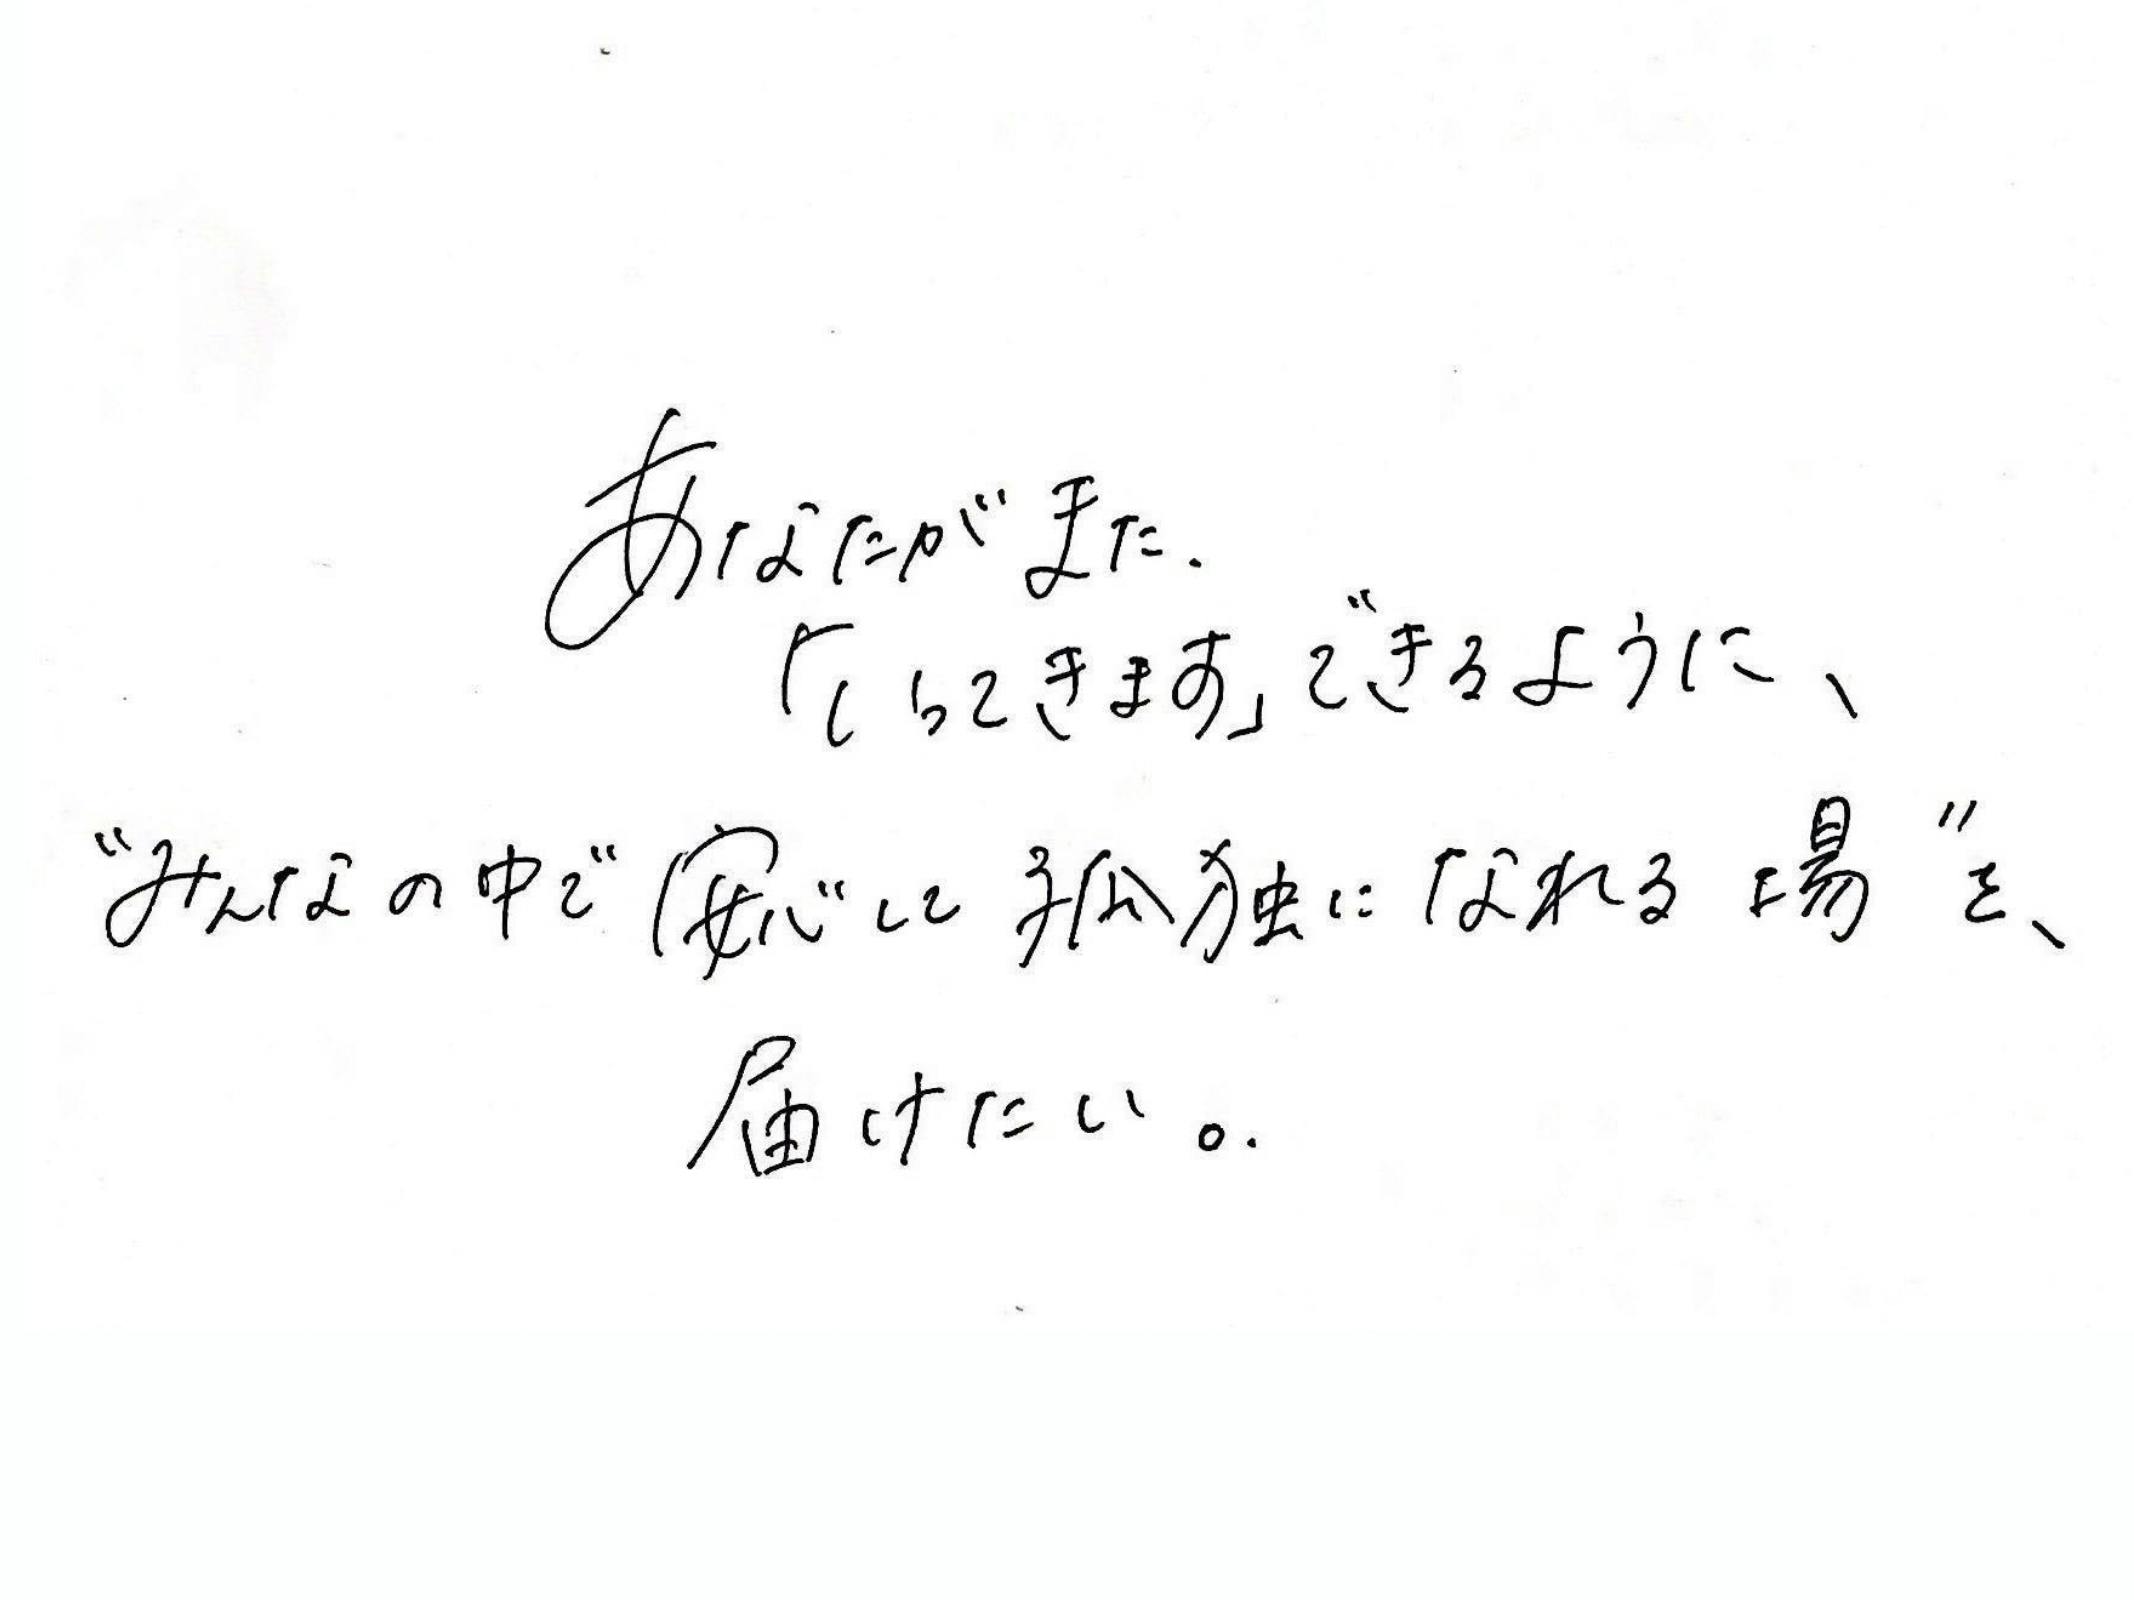 あなたがまた.
「いってきます」できるように、
“みんなの中で安心して孤独になれる場”を、
届けたい。.